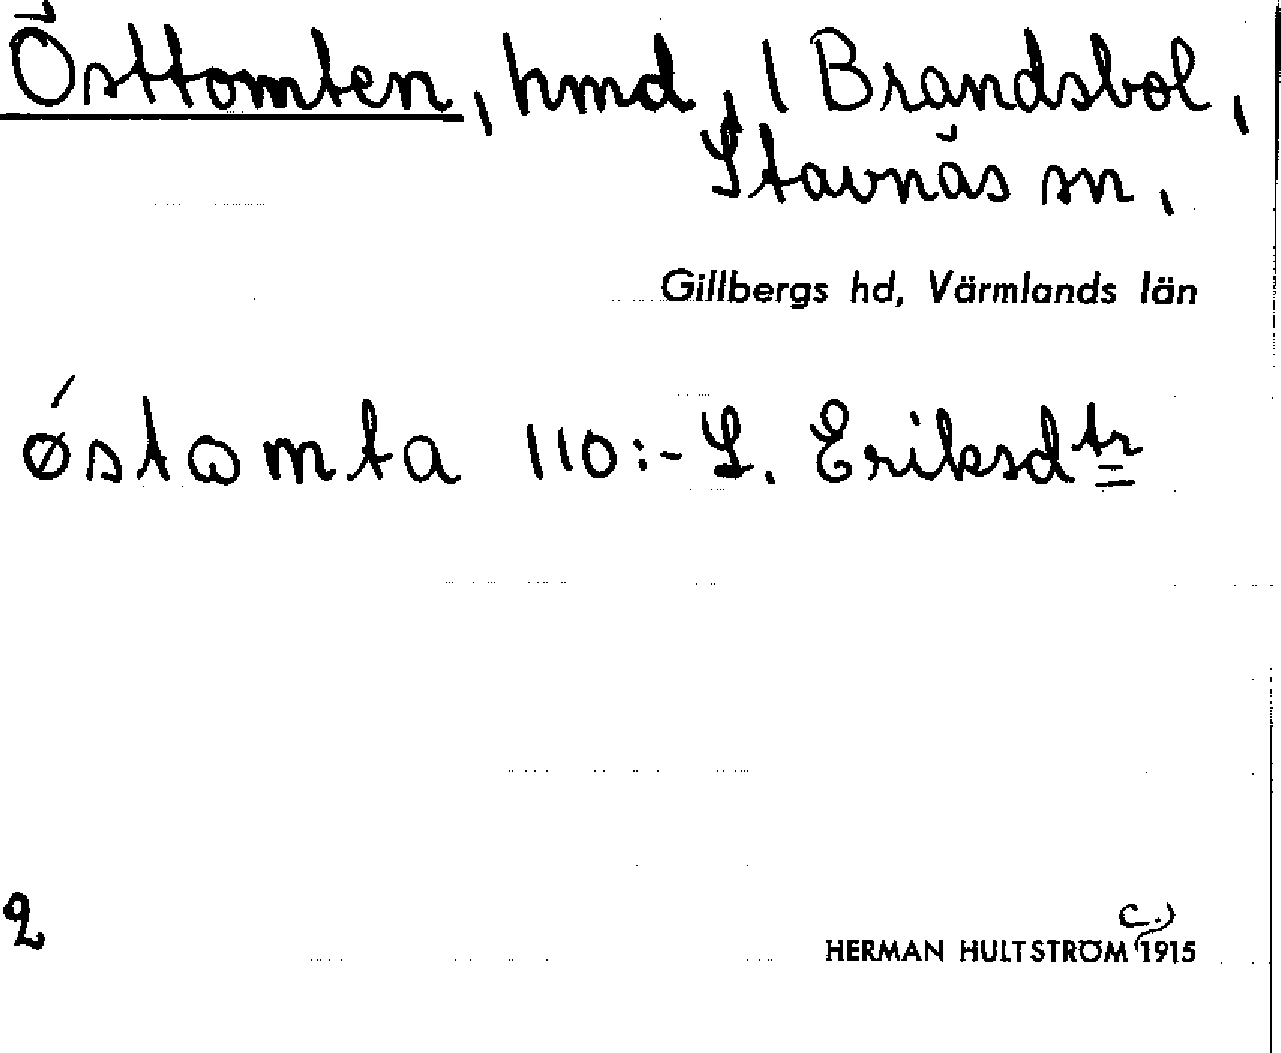 Östtomten, hmd, 1 Brandsbol,
Stavnäs sn.
Gillbergs hd, Värmlands län
ǿstɷmta 110:- L. Eriksdtr
2
HERMAN HULTSTRÖM (C.) 1915